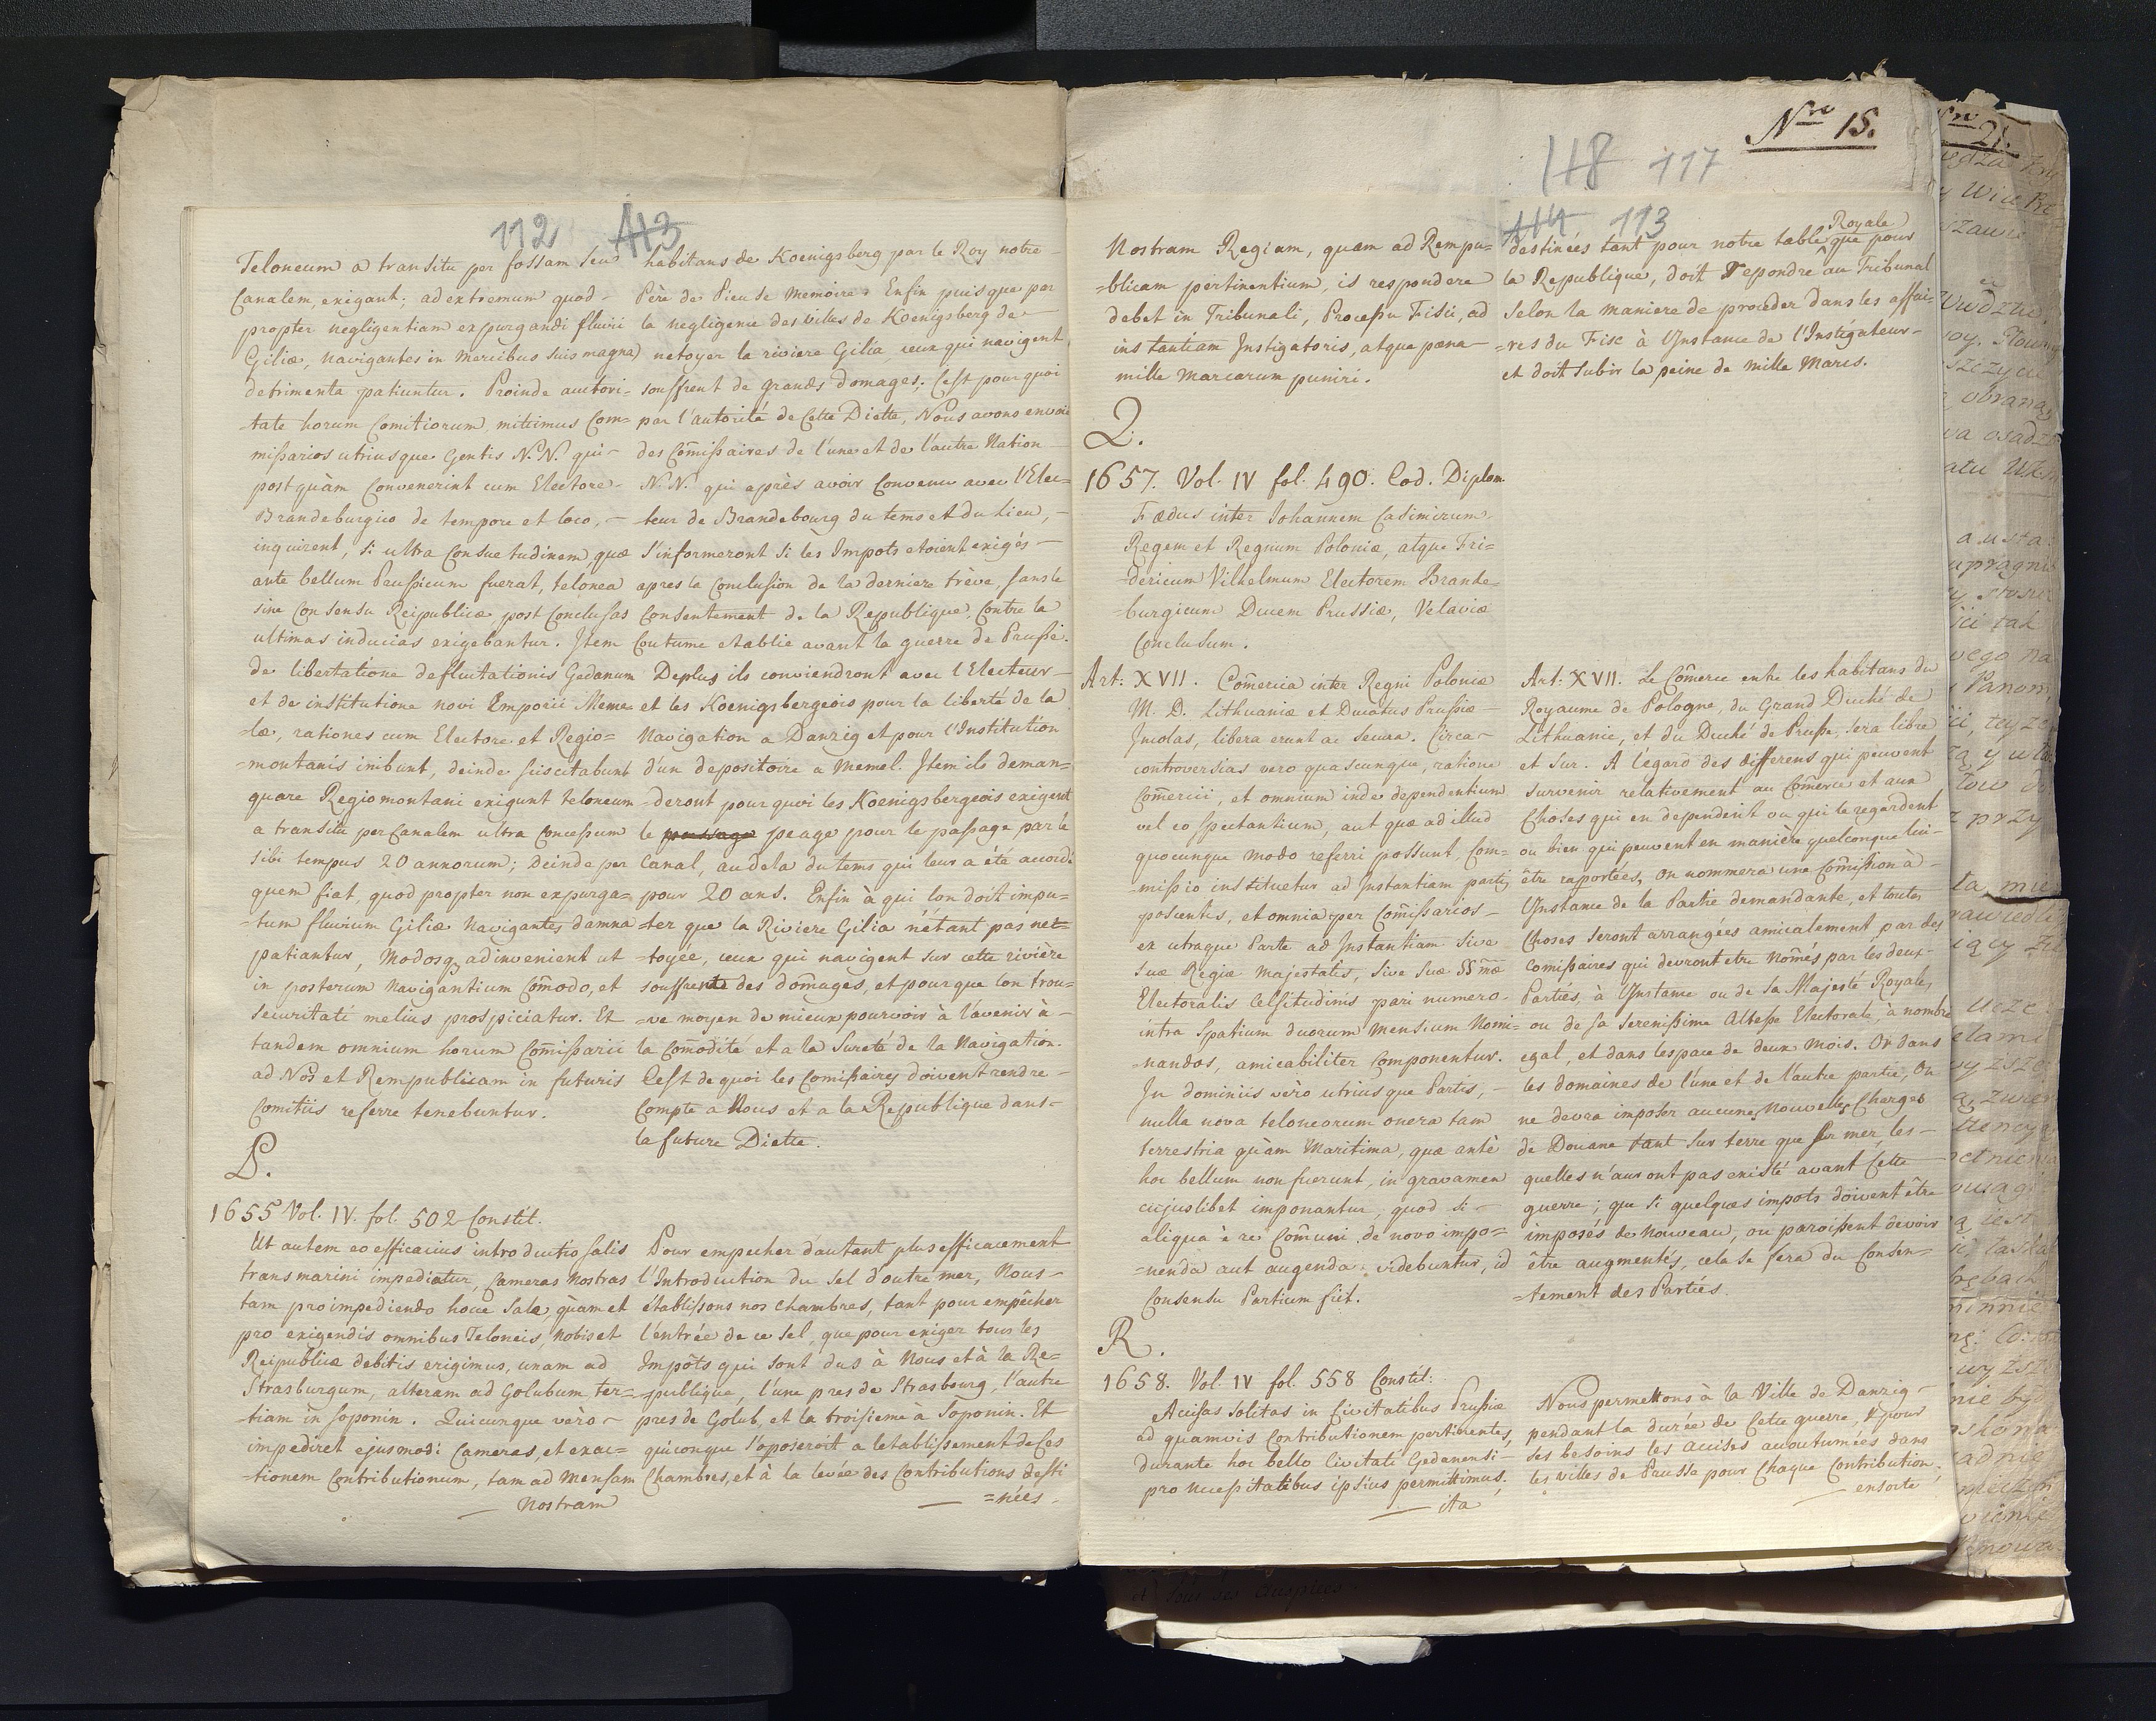 112 113
Teloneum a transitu per fossam seu
Canalem, exigant; ad extremum quod
propter negligentiam expurgandi fluvii
Giliæ, navigantes in mercibus suis magna
detrimenta patiuntur. Proinde auctori-
-tate horum Comitiorum, mittimus Com=
missarios utriusque Gentis N. N. qui-
postquàm Convenerint cum Electore-
Brandeburgico de tempore et loco, -
inquirent, si ultra Consuetudinem quæ
ante bellum Prussicum fuerat, telonea
sine Consensu Reipublicæ, post Conclusas
ultimas inducias exigebantur. Item
de libertatione defluitationis Gedanum
et de institutione novi Emporii Meme
-læ, rationes cum Electore et Regio=
-montanis inibunt, deinde suscitabunt
quare Regiomontani exigunt teloneum
a transitu per Canalem ultra Concessum
sibi tempus 20 annorum; Deinde per
quem fiat, quod propter non expurga=
-tum fluvium Giliæ Navigantes damna
patiantur, Modosq adinvenient ut
in posterum Navigantium Comodo, et
securitati melius prospiciatur. Et
tandem omnium horum Comissarii
ad Nos et Rempublicam in futuris
Comitiis referre tenebuntur.
habitans de Koenigsberg par le Roy notre-
Père de Pieuse Memoire. Enfin puisque par
la negligence des villes de Koenigsberg de-
netoyer la riviere Gilia, ceux qui navigent
souffrent de grands domages; C'est pourquoi
par l'autorité de Cette Diette, Nous avons envoié
des Comissaires de l'une et de l'autre Nation
N. N. qui après avoir Convenu avec l'Elec=
teur de Brandebourg du tems et du lieu, -
s'informeront si les Impots etoient exigés-
apres la Conclusion de la derniere trève, sans le
Consentement de la Republique, Contre la
Coutume etablie avant la guerre de Prusse.
Deplus ils conviendront avec l'Electeur
et les Koenigsbergeois pour la liberté de la
Navigation a Danzig et pour l'Institution
d'un depositoire a Memel. Item ils deman=
-deront pourquoi les Koenigsbergeois exigent
le passage peage pour le passage par le
Canal, audela du tems qui leur a été accordé
pour 20 ans. Enfin à qui l'on doit impu=
-ter que la Riviere Gilia n'étant pas net=
-toyée, ceux qui navigent sur cette rivière
souffrent des domages, et pour que l'on trou=
=ve moyen de mieux pourvoir à l'avenir à-
la Comodité et a la Sureté de la Navigation.
C'est de quoi les Comissaires doivent rendre-
Compte a Nous et a la Republique dans-
la future Diette.
P.
1655 Vol. IV. fol. 502 Constit.
Ut autem eo efficacius introductio salis
transmarini impediatur, Cameras Nostras
tam pro impediendo hocce sale, quàm et
pro exigendis omnibus Teloneis, Nobis et
Reipublicæ debitis erigimus, unam ad
Strasburgum, alteram ad Golubum, ter=
-tiam in Soponin. Quicunque vèro-
impediret ejusmodi Cameras, et exac=
-tionem Contributionum, tam ad Mensam
Nostram
Pour empecher d'autant plus efficacement
l'Introduction du Sel d'outre mer, Nous-
établissons nos Chambres, tant pour empêcher
l'entrée de ce Sel, que pour exiger tous les
Impôts qui sont dus à Nous et à la Re=
-publique, l'une pres de Strasbourg, l'autre
pres de Golub, et la troisieme à Soponin. Et
quiconque s'oposeroit a letablissement de Ces
Chambres, et à la levée des Contributions desti
=nées.
Nro 15.
118 117
114 113
Nostram Regiam, quam ad Rempu=
=blicam pertinentium, is respondere
debet in Tribunali, Processu Fisci, ad
instantiam Instigatoris, atque poena-
mille Marcarum puniri.
Royale
destinées tant pour notre table que pour
la Republique, doit repondre au Tribunal
selon la maniere de proceder dans les affai=
=res du Fisc à l'Instance de l'Instigateur-
et doit subir la peine de mille Marcs.
Q.
1657. Vol. IV fol. 490. Cod. Diplom.
Fœdus inter Iohannem Casimirum
Regem et Regnum Poloniæ, atque Fri=
=dericum Vilhelmum Electorem Brande
-burgicum Ducem Prussiæ, Velaviæ
Conclusum.
Art: XVII. Comercia inter Regni Poloniæ
M. D. Lithuaniæ et Ducatus Prussiæ-
Incolas, libera erunt ac secura. Circa-
controversias vero quascunque, ratione
Comercii, et omnium inde dependentium
vel eo spectantium, aut quæ ad illud
quocunque modo referri possunt, Com=
-missio instituetur ad Instantiam partis
poscentis, et omnia per Comissarios-
ex utraque Parte ad Instantiam sive
suæ Regiæ Majestatis, sive suæ SSmæ
Electoralis Celsitudinis pari numero-
intra spatium duorum Mensium Nomi=
-nandos, amicabiliter Componentur.
In dominiis vèro utriusque Partis, -
nulla nova teloneorum onera tam
terrestria quàm Maritima, quæ antè
hoc bellum non fuerunt, in gravamen
cujuslibet imponantur, quod si-
aliqua è re Comuni de novo impo=
-nenda aut augenda videbuntur, id
Consensu Partium fiet.
Art: XVII. Le Comerce entre les habitans du
Royaume de Pologne, du Grand Duché de
Lithuanie, et du Duché de Prusse, sera libre
et sur. A l'égard des differens qui peuvent
survenir relativement au Comerce et aux
Choses qui en dependent ou qui le regardent
ou bien qui peuvent en manière quelconque lui-
être raportées, on nommera une Comission à-
l'Instance de la Partie demandante, et toutes
Choses seront arrangées amicalement par des
Comissaires qui devront etre Només par les deux-
Parties, à l'Instance ou de sa Majesté Royale,
ou de sa Serenissime Altesse Electorale, à nombre
egal, et dans lespace de deux Mois. Or dans
les domaines de l'une et de l'autre partie, On
ne devra imposer aucune Nouvelles Charges
de Douane tant sur terre que sur mer, les-
quelles n'auront pas existé avant Cette
guerre; que si quelques impots doivent être
imposés de Nouveau, ou paroissent devoir
être augmentés, cela se fera du Consen=
-tement des Parties.
R.
1658. Vol. IV fol. 558 Constit:
Accisas solitas in Civitatibus Prussiæ
ad quamvis Contributionem pertinentes,
durante hoc bello Civitati Gedanensi-
pro necessitatibus ipsius permittimus.
ita
Nous permettons à la Ville de Danzig-
pendant la durée de Cette guerre, & pour
ses besoins les acises acoutumées dans
les villes de Prusse pour Chaque Contribution,
ensorte